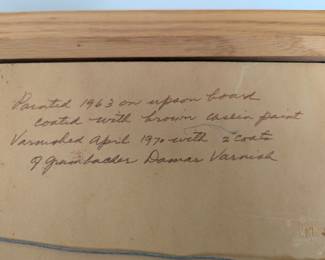 Painted 1963 on upson board
coated with brown casein paint
Varnished April 1970 with 2 coats
of Grumbacher Damar Varnish